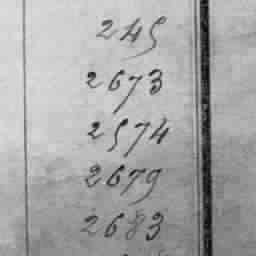 245
2673
2574
2679
2683